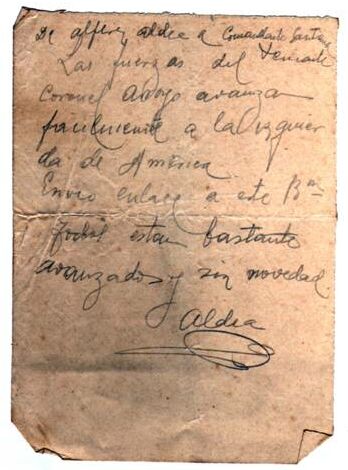 De alferez aldea a Comandante
Las fuerzas del teniente
coronel arroyo avanzan
facilmente a la izquier
da de América.
Envio enlace a este Bon
Todos estan bastante
avanzados y sin novedad.
Aldea